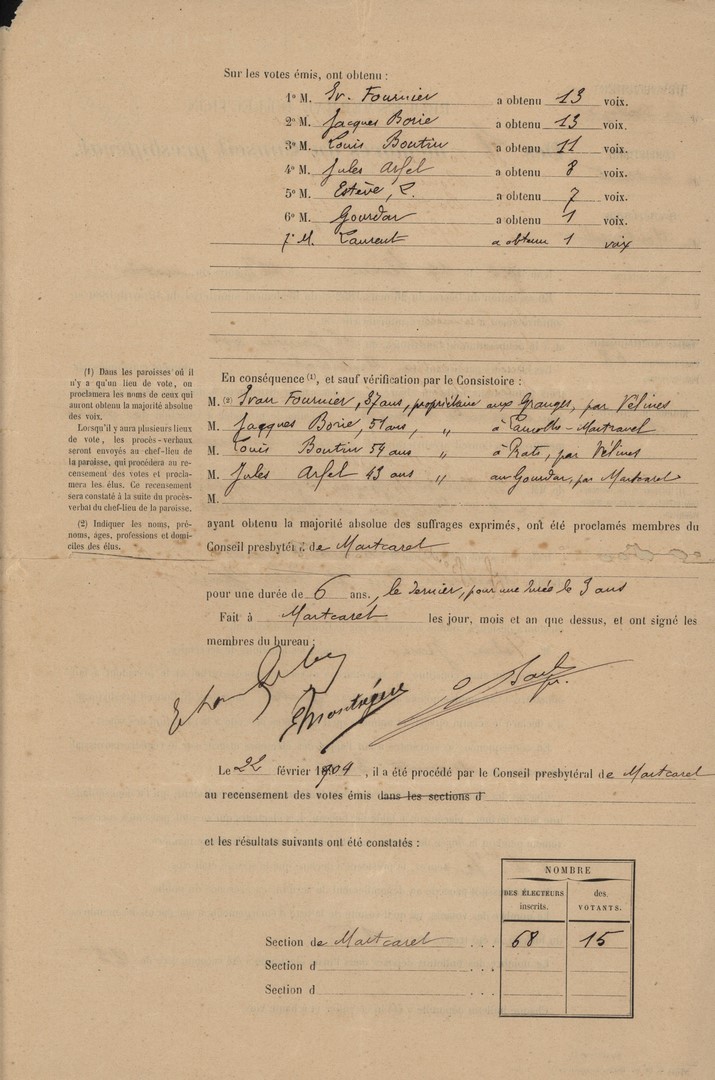 Sur les votes émis, ont obtenu :
1º M. Iv. Fournier a obtenu 13 voix.
2º M. Jacques Borie a obtenu 13 voix.
3º M. Louis Boutin a obtenu 11 voix.
4º M. Jules Arfel a obtenu 8 voix.
5º M. Estève, a obtenu 7 voix.
6º M. Gourdar a obtenu 1 voix.
7º M. Laurent a obtenu 1 voix
(1) Dans les paroisses où il
n'y a qu'un lieu de vote, on
proclamera les noms de ceux qui
auront obtenu la majorité absolue
des voix.
Lorsqu'il y aura plusieurs lieux
de vote, les procès-verbaux
seront envoyés au chef-lieu de
la paroisse, qui procédera au re-
censement des votes et procla-
mera les élus. Ce recensement
sera constaté à la suite du procès-
verbal du chef-lieu de la paroisse.
(2) Indiquer les noms, pré-
noms, âges, professions et domi-
ciles des élus.
En conséquence (1), et sauf vérification par le Consistoire :
M. (2) Ivan Fournier, 37 ans, propriétaire aux Granges, par Vélines
M. Jacques Borie, 51 ans, " à
M. Louis Boutin 54 ans " à Prats, par Vélines
M. Jules Arfel 43 ans " au Gourdar, par Montcaret
M.
ayant obtenu la majorité absolue des suffrages exprimés, ont été proclamés membres du
Conseil presbytéral de Montcaret
pour une durée de 6 ans, le dernier, pour une durée de 3 ans
Fait à Montcaret les jour, mois et an que dessus, et ont signé les
membres du bureau :
Le 22 février 1909, il a été procédé par le Conseil presbytéral de Montcaret
au recensement des votes émis dans les sections d
et les résultats suivants ont été constatés :
NOMBRE
DES ÉLECTEURS inscrits. des VOTANTS.
Section de Montcaret . . . 68 15
Section d . . .
Section d . . .